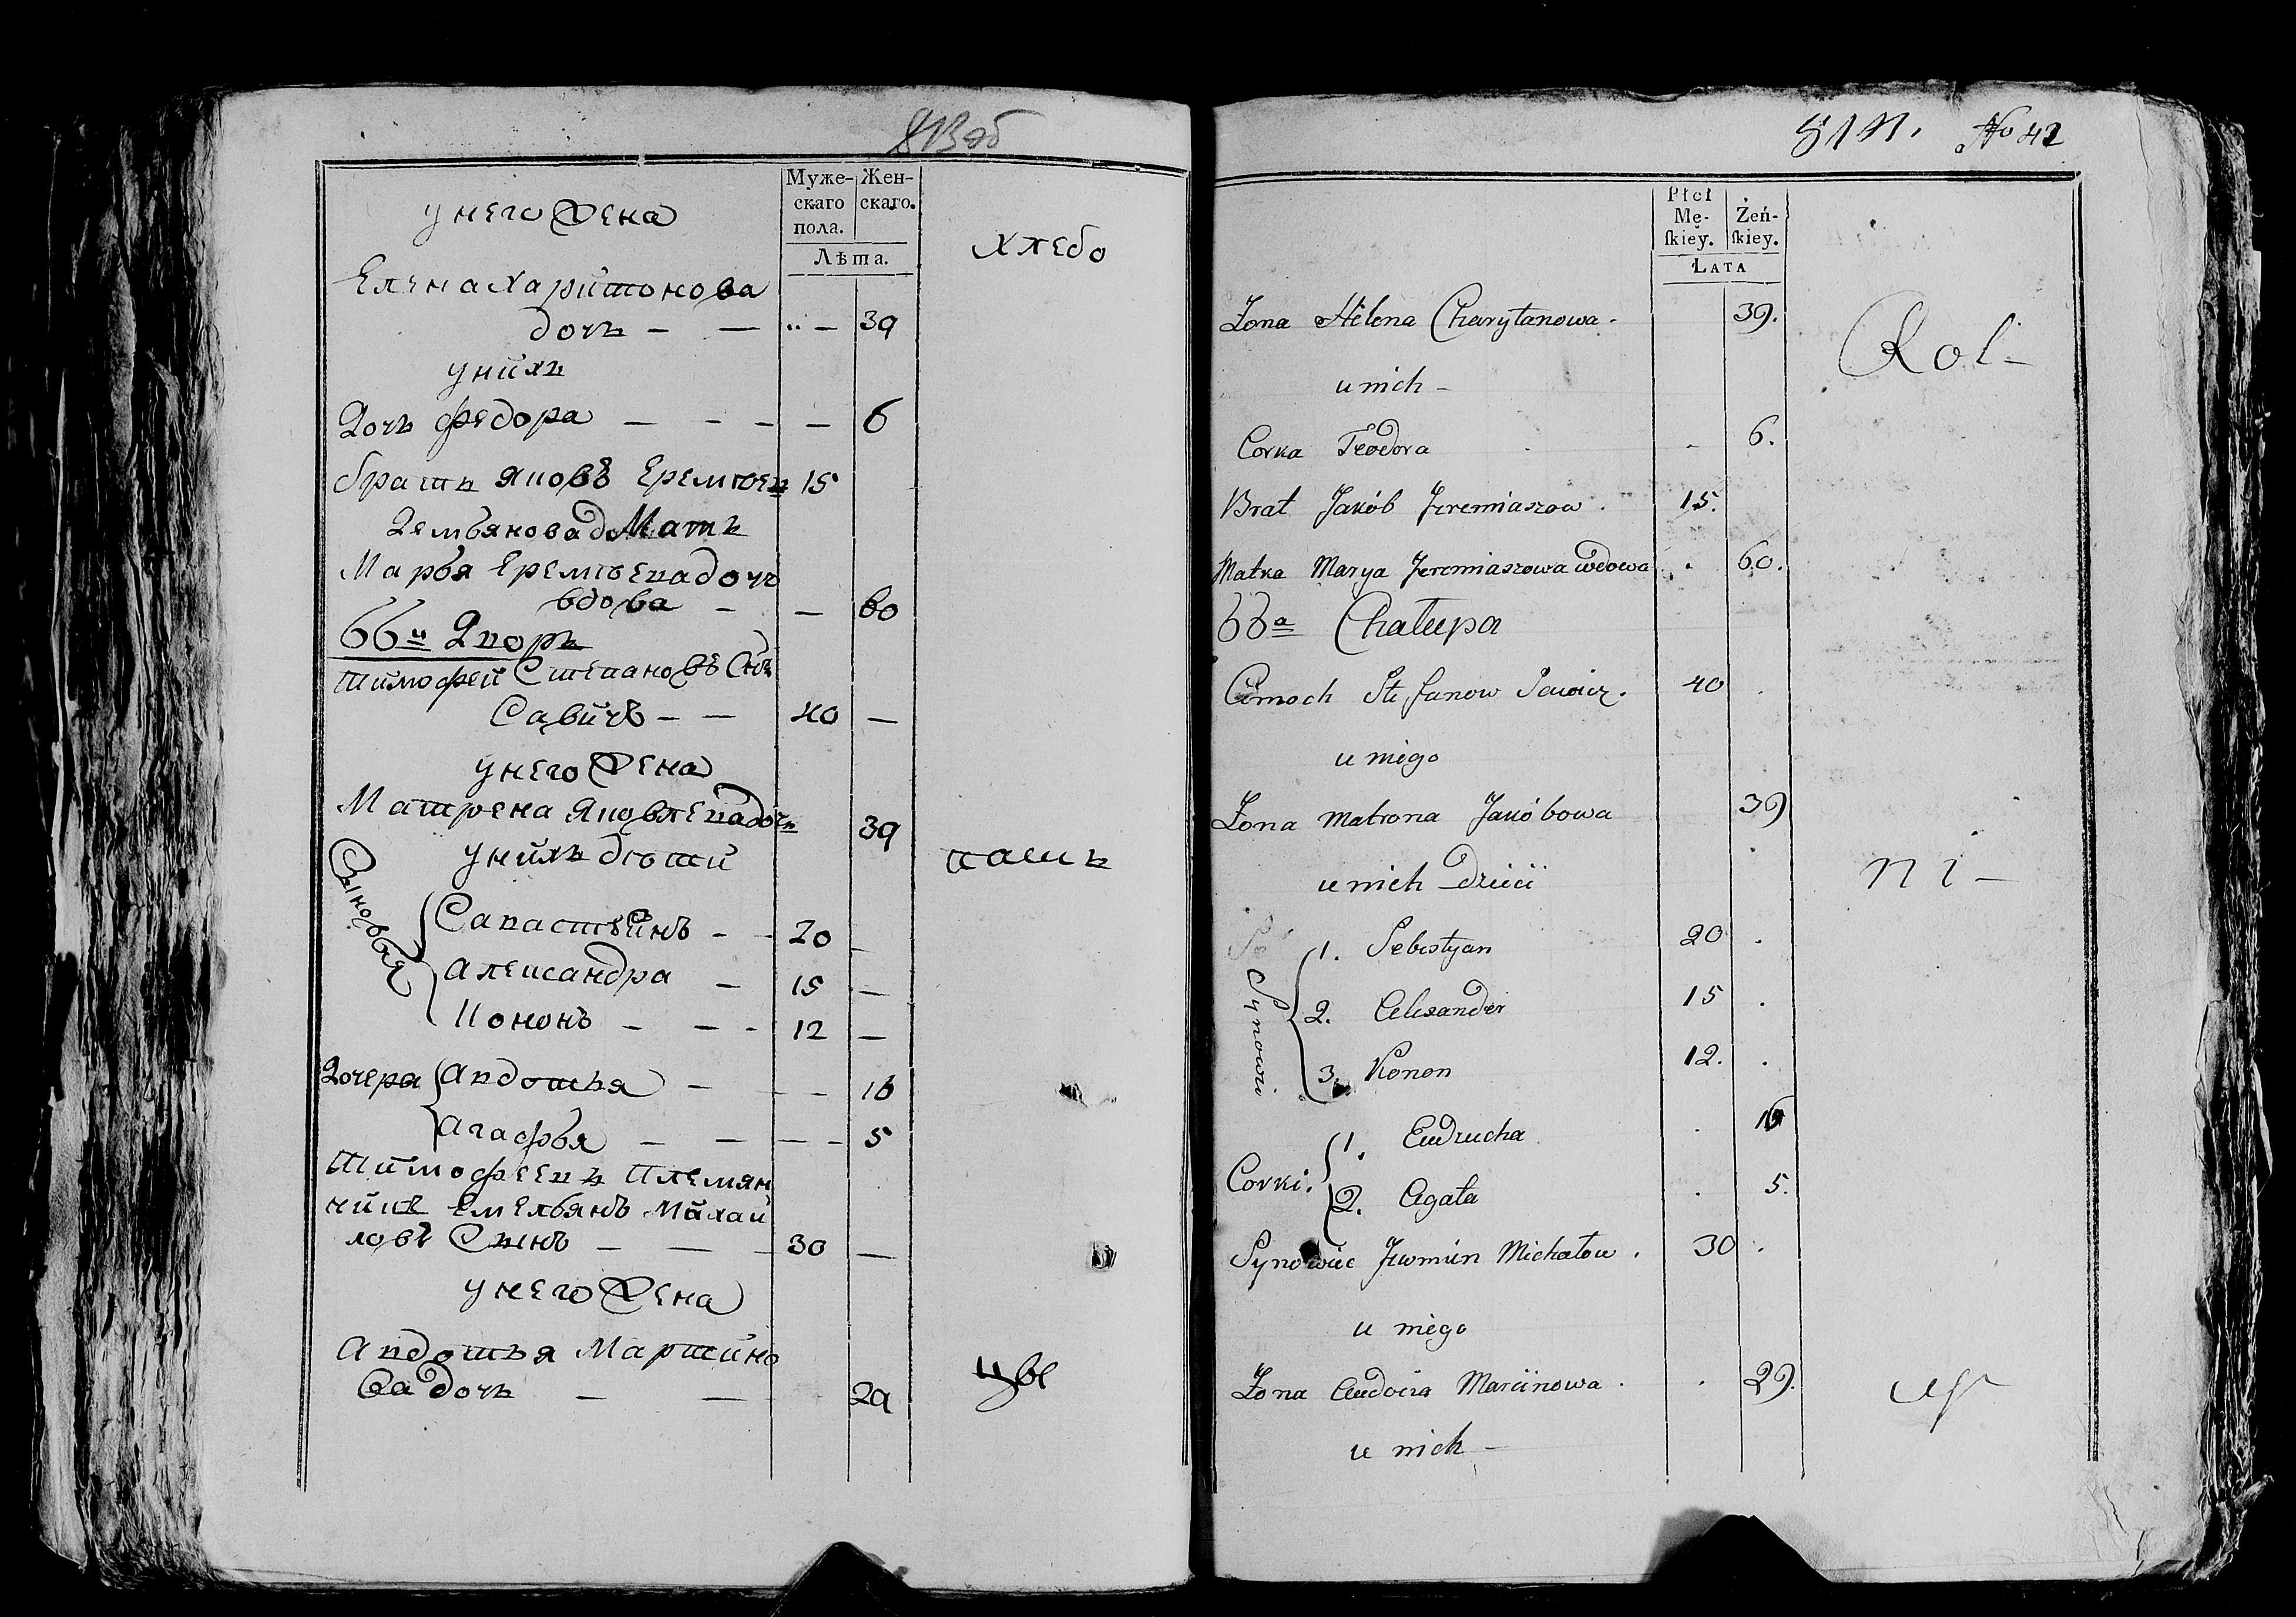 813 об
Муже-
скаго
пола.
Жен-
скаго.
Лѣта.
у него Жена
хлебо
Елена Харитонова
дочь - — " — 39
у нихъ
Дочь Федора — - - — 6
братъ Яковъ Еремѣевъ 15
Демьянова Мать
Марья Еремѣева дочь
вдова - — 60
66й Дворъ
Тимофей Степановъ Снъ
Савичъ - — 40 —
у него Жена
Матрена Яковлева дочь
39
у нихъ дѣти
паш
Сыновья
Савастѣинъ - - 20 —
Александра — 15 —
Кононъ - - - 12 —
Дочери Авдотья - - — 16
Агафья — — — - 5
Тимофеевъ Племян
никъ Емельянъ Михай
ловъ Сынъ — — - 30 —
у него Жена
Авдотья Мартино
ва дочь — — 29
цы
814. No 42
Płci
Mę-
ſkiey.
Żeń-
ſkiey.
LATA
Żona Helena Charytanowa. 39.
Rol-
u nich -
Corka Teodora - 6.
Brat Jakób Jeremiaszow. 15.
Matka Marya Jeremiaszowa wdowa . 60.
66a Chałupa
Cimoch Stefanow Sawicz. 40 .
u niego
Zona Matrona Jakóbowa 39
u nich dzieci
ni-
Synowie
1. Sebestyan 20 .
2. Alexander 15 .
3. Konon 12. .
Corki.
1. Eudrucha . 16
2. Agata . 5.
Synowiec Jewmin Michałow. 30 .
u niego
Zona Audocia Marcinowa . . 29.
cy
u nich -